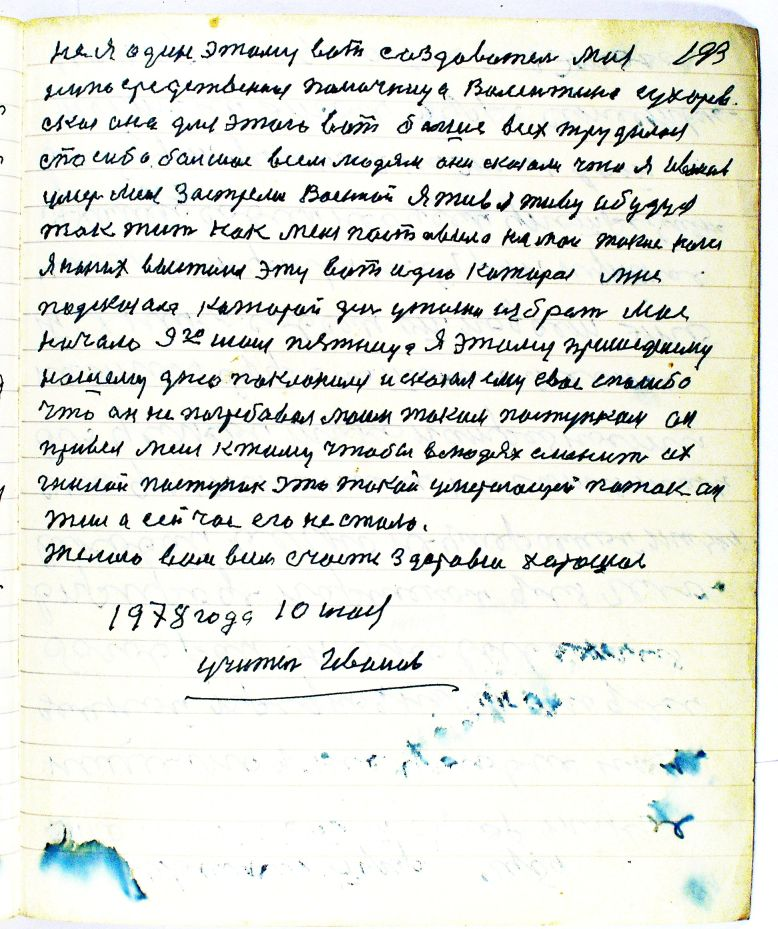 не я один этому вот создователь моя 193
непосредственная помочница Валентина сухарев.
ская она для этого вот больше всех трудилася
спосибо большое всем людям они сказали что я Иванов
умер меня застрелил Военной Я жив я живу и буду
так жить как меня поставило на мои такие ноги
Я на них выстоял эту вот идею которая мне
подсказала которой ден ужино избрат мое
начало 9го мая пятница Я этому прошедшему
нашему дню поклонился и сказал ему свое спасибо
что он не потребовал моим таким поступкам он
привел меня к тому чтобы в людях сменит их
гнилой поступок это такой умерающей поток он
жил а сейчас его не стало.
Желаю вам всем счастя здаровия хорошое
1978 года 10 мая
учител Иванов